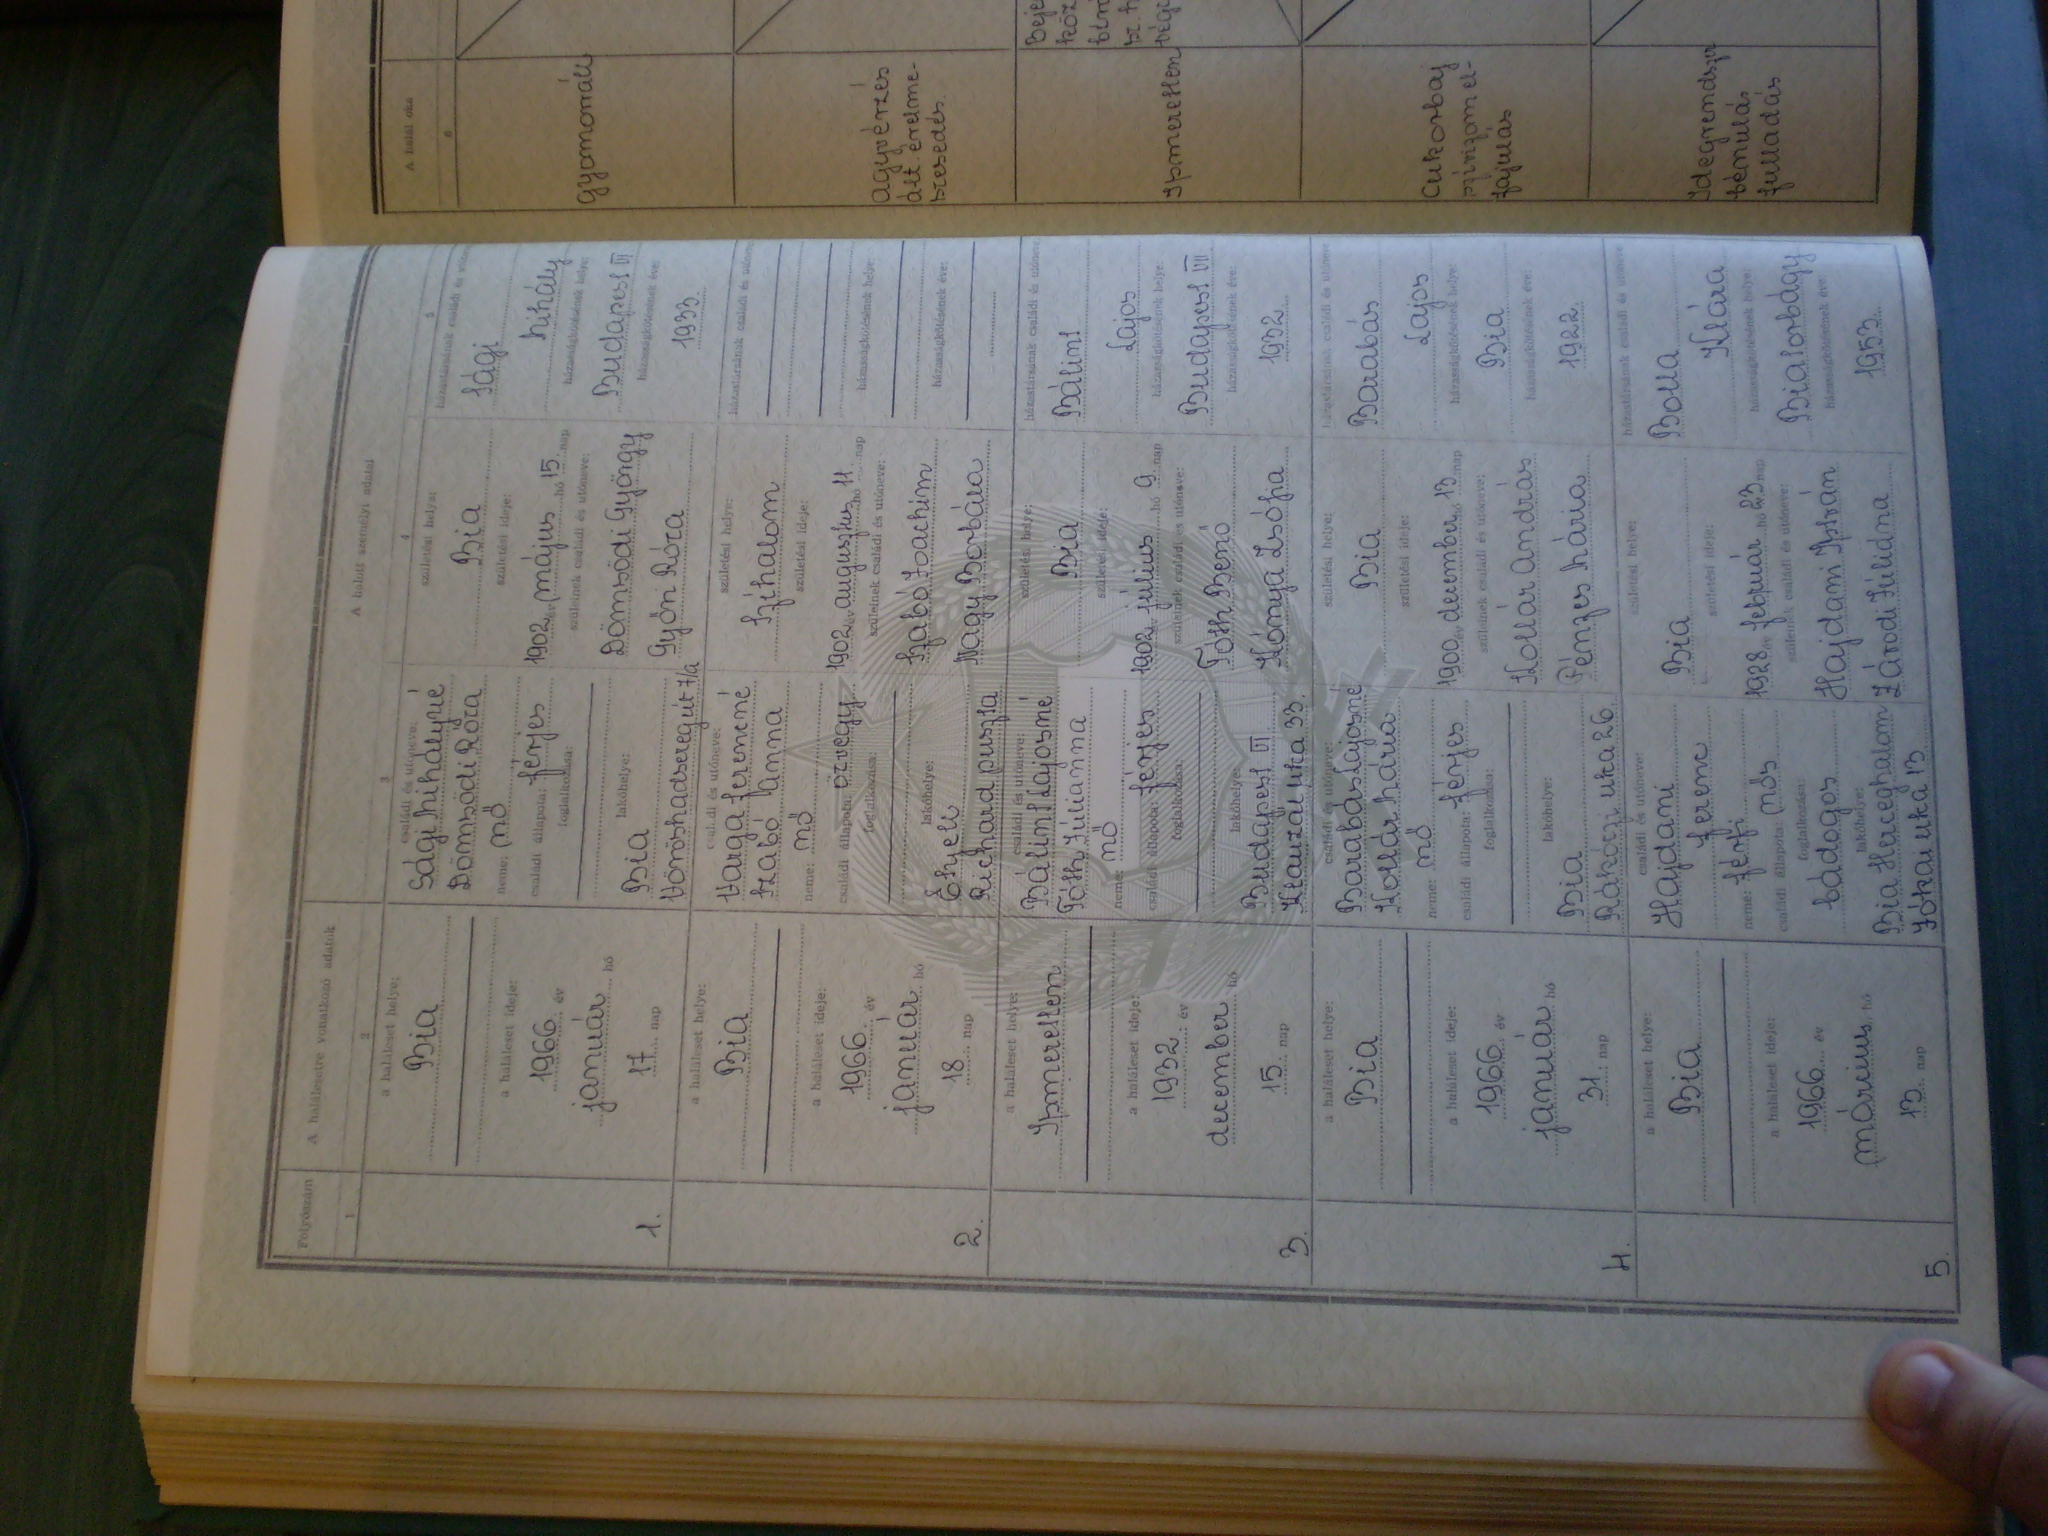 Folyószám
A halálesetre vonatkozó adatok
A halott személyi adatai
1
2
3
4
5
1.
a haláleset helye:
Bia
a haláleset ideje:
1966. év
január hó
17 nap
családi és utóneve:
Sági Mihályné
Dömsödi Róza
neme: nő
családi állapota: férjes
foglalkozása:
lakóhelye:
Bia
Vöröshadsereg út 7/a
születési helye:
Bia
születési ideje:
1902 év május hó 15 nap
szüleinek családi és utóneve:
Dömsödi György
Győri Róza
házastársának családi és utóneve
Sági
Mihály
házasságkötésének helye:
Budapest VI
házasságkötésének éve:
1933.
2.
a haláleset helye:
Bia
a haláleset ideje:
1966. év
január hó
18 nap
családi és utóneve:
Varga Ferencné
Szabó Anna
neme: nő
családi állapota: özvegy
foglalkozása:
lakóhelye:
Etyek
Richárd puszta
születési helye:
Szihalom
születési ideje:
1902 év augusztus hó 11. nap
szüleinek családi és utóneve:
Szabó Joachim
Nagy Borbára
házastársának családi és utóneve
házasságkötésének helye:
házasságkötésének éve:
3.
a haláleset helye:
Ismeretlen
a haláleset ideje:
1932 év
december hó
15. nap
családi és utóneve:
Bálint Lajosné
Tóth Julianna
neme: nő
családi állapota: férjes
foglalkozása:
lakóhelye:
Budapest VI
Klauzál utca 33.
születési helye:
Bia
születési ideje:
1902 év július hó 9 nap
szüleinek családi és utóneve:
Tóth Benő
Kónya Zsófia
házastársának családi és utóneve
Bálint
Lajos
házasságkötésének helye:
Budapest VII
házasságkötésének éve:
1932
4.
a haláleset helye:
Bia
a haláleset ideje:
1966 év
január hó
31 nap
családi és utóneve:
Barabás Lajosné
Kollár Mária
neme: nő
családi állapota: férjes
foglalkozása:
lakóhelye:
Bia
Rákóczi utca 26.
születési helye:
Bia
születési ideje:
1900 év december hó 13 nap
szüleinek családi és utóneve:
Kollár András
Pénzes Mária
házastársának családi és utóneve
Barabás
Lajos
házasságkötésének helye:
Bia
házasságkötésének éve:
1922
5.
a haláleset helye:
Bia
a haláleset ideje:
1966 év
március hó
13 nap
családi és utóneve:
Hajdami
Ferenc
neme: férfi
családi állapota: nős
foglalkozása:
bádogos
lakóhelye:
Bia Herceghalom
Jókai utca 13
születési helye:
Bia
születési ideje:
1928 év február hó 23 nap
szüleinek családi és utóneve:
Hajdami István
Závodi Julianna
házastársának családi és utóneve
Bolla
Klára
házasságkötésének helye:
Biatorbágy
házasságkötésének éve:
1953
A halál oka
6
gyomorrák
agyvérzés
ált. érelme-
szesedés.
Ismeretlen
Cukorbaj
szívizom el-
fajulás
Idegrendszer
bénulás
fulladás